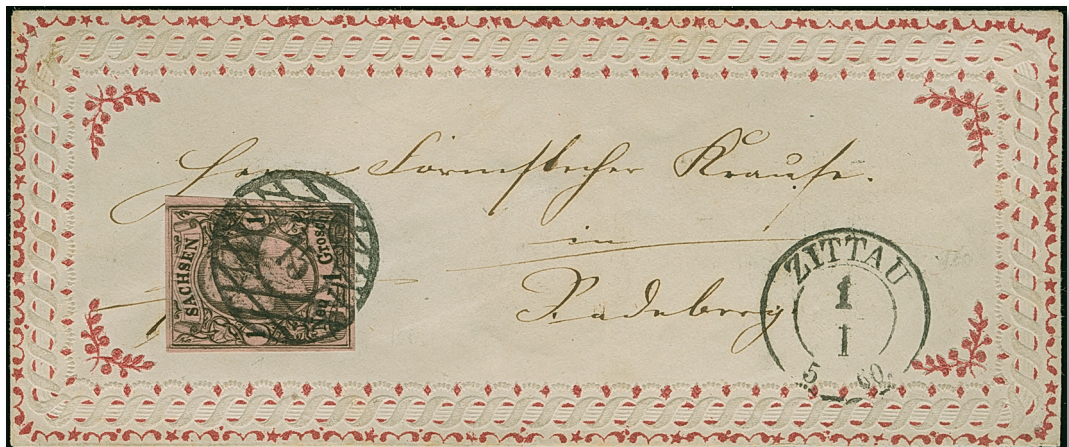 Herrn Formstecher Krause.
in
Radeberg.
SACHSEN
1
Neu-Grosch
2
ZITTAU
1
1
5 60.